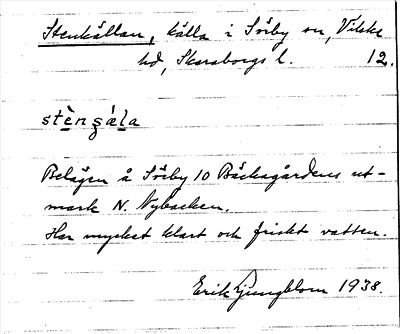 Stenkällan, källa i Sörby sn, Vilske
hd, Skaraborgs l. 12.
stèngǽla
Belägen å Sörby 10 Bäckagårdens ut-
mark N. Nybacken.
Har mycket klart och friskt vatten.
Erik Ljungblom 1938.